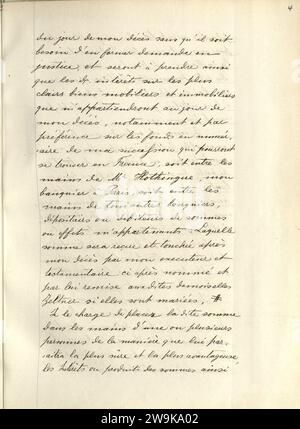 4
du jour de mon décès sans qu'il soit
besoin d'en former demande en
justice et seront à prendre ainsi
que les dts intérêts sur les plus
clairs biens mobiliers et immobiliers
que m'appartiendront au jour de
mon décès, notamment et par
préférence sur les fonds en numé,
raire de ma succession qui pourront
se trouver en France, soit entre les
mains de Mr Hottingue, mon
banquier à Paris, soit entre les
mains de tous autres banquiers,
dépositaires ou débiteurs de sommes
ou effets m'appartenants. Laquelle
somme sera reçue et touchée après
mon décès par mon executeur
testamentaire ci après nommé et
par lui remise aux dites demoiselles
si elles sont mariées,
à la charge de placer la dite somme
dans les mains d'une ou plusieurs
personnes de la manière que lui par-
aitra la plus sûre et la plus avantageuse,
les intérêts ou produits des sommes ainsi
alamy
www.alamy.com
Image ID: 2W9KA02